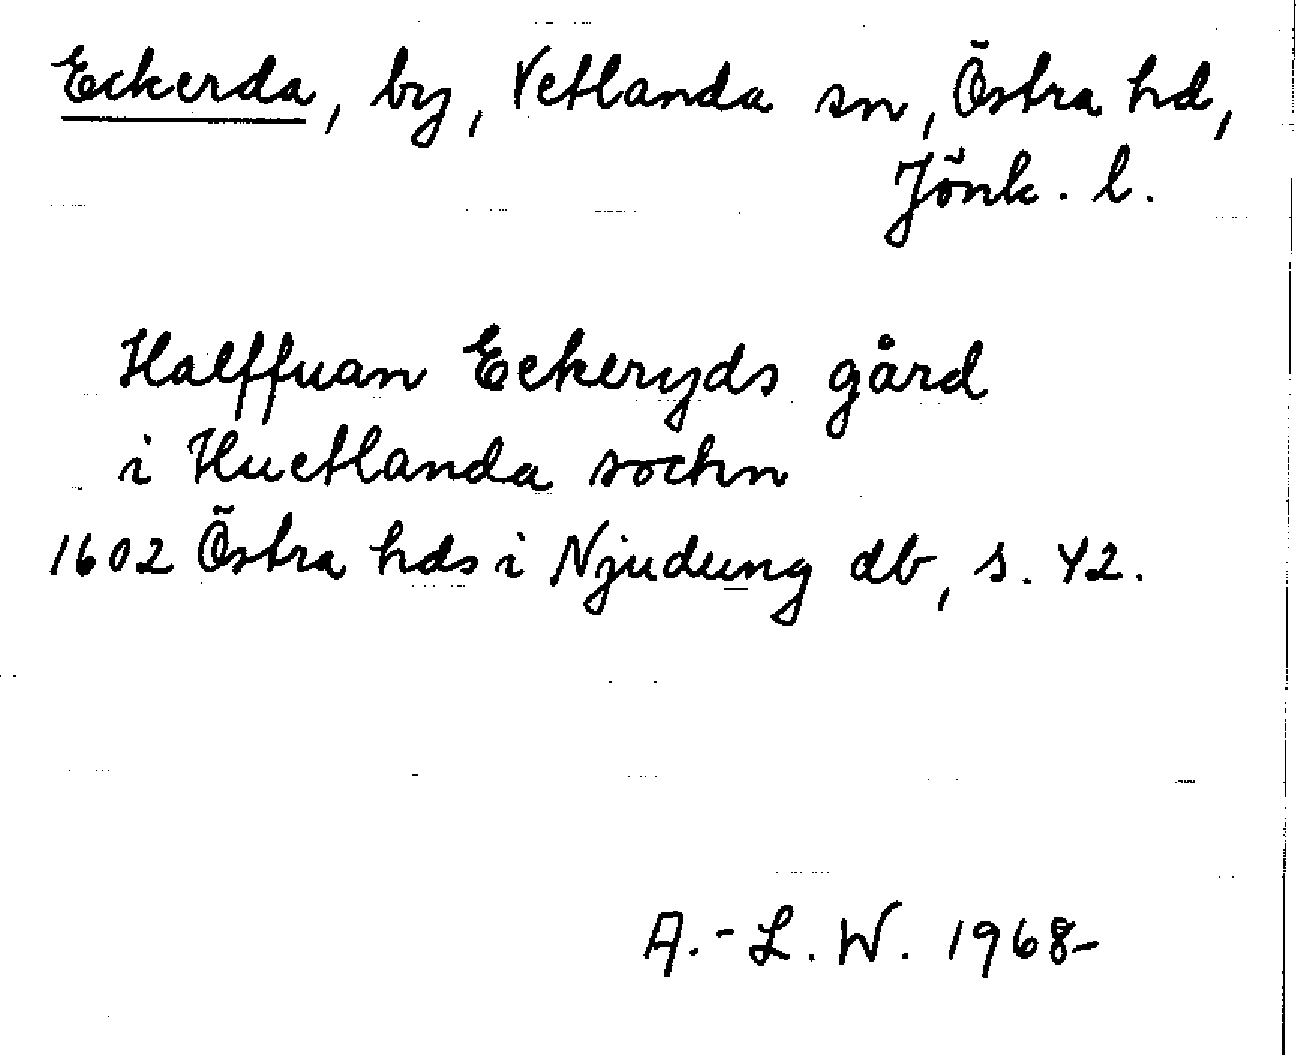 Eckerda, by, Vetlanda sn, Östra hd,
Jönk. l.
Halffuan Eckeryds gård
i Huetlanda sochn
1602 Östra hds i Njudung db, s. 42.
A.-L. W. 1968